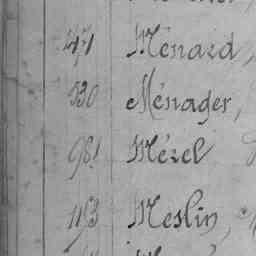 471 Ménard,
930 Ménager,
981 Mérel
1193 Meslin,